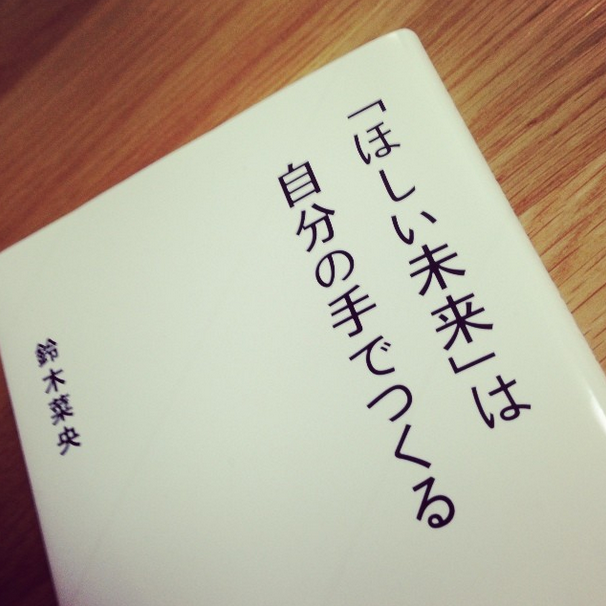 「ほしい未来」は
自分の手でつくる
鈴木菜央